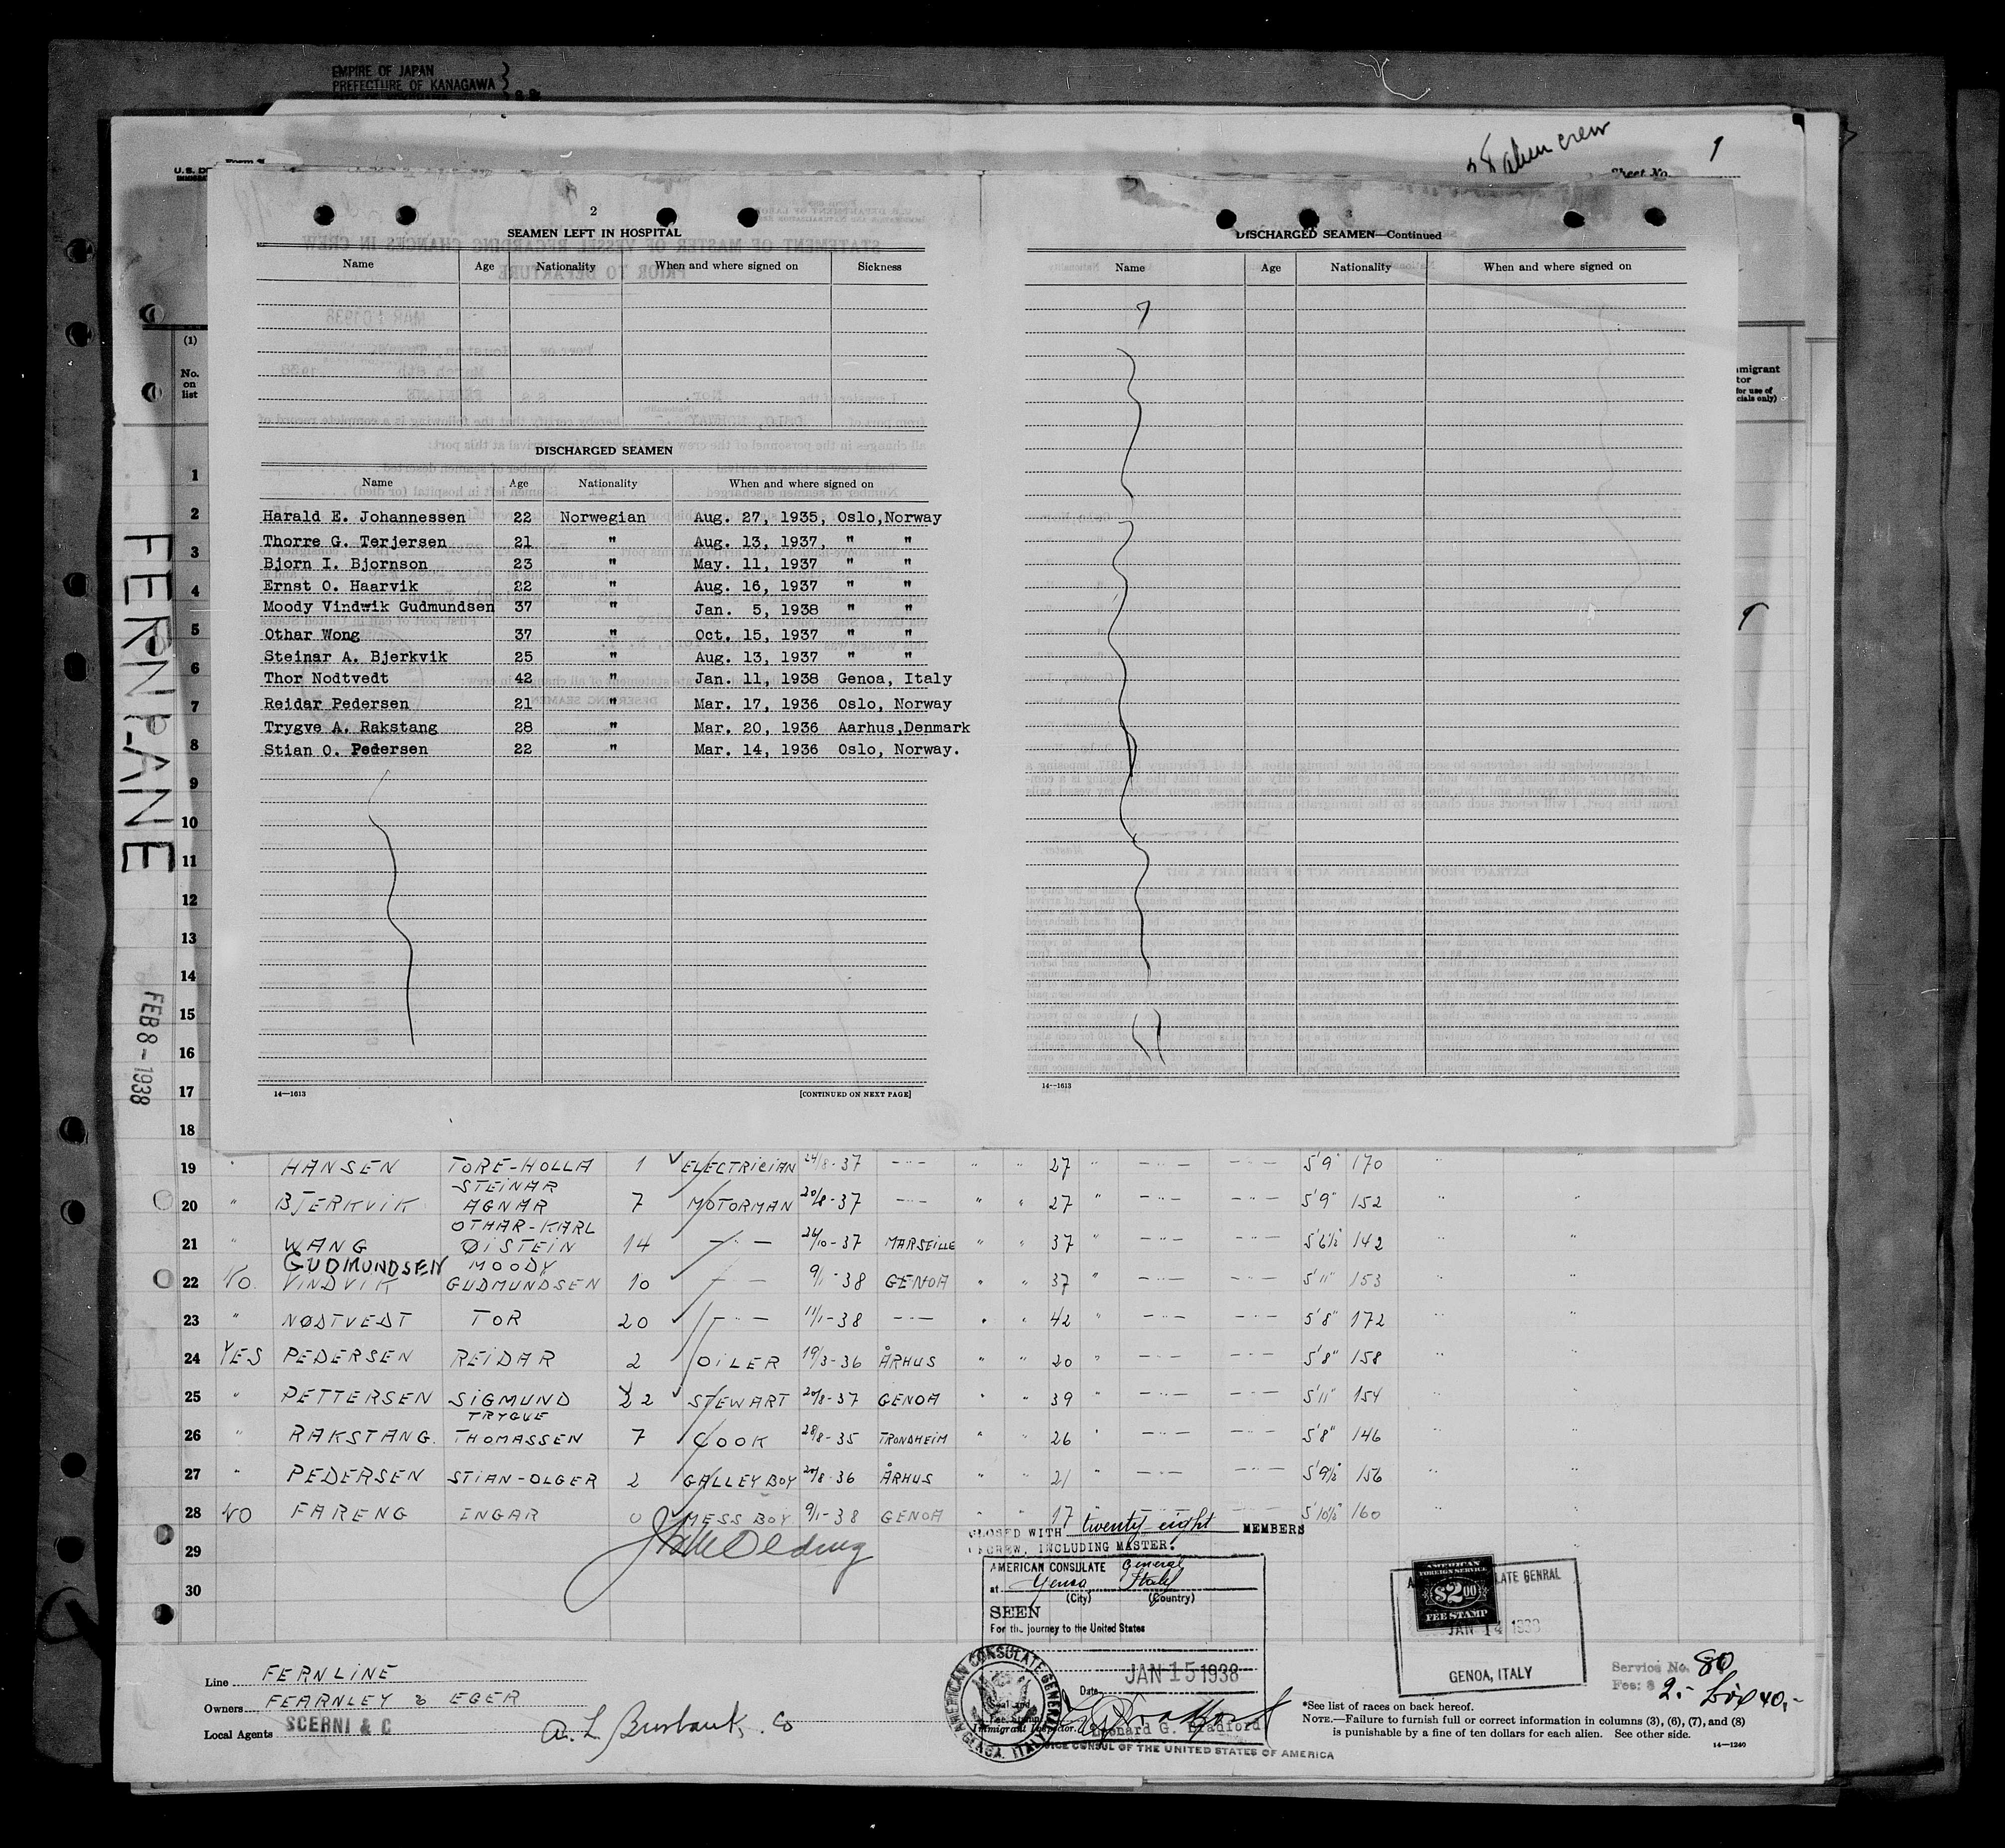 EMPIRE OF JAPAN
PREFECTURE OF KANAGAWA
alien crew
9
Sheet No.
U.S. D
(1)
No.
on
list
FERNLANE
FEB 8 - 1938
2
SEAMEN LEFT IN HOSPITAL
Name Age Nationality When and where signed on Sickness
DISCHARGED SEAMEN
Name Age Nationality When and where signed on
Harald E. Johannessen 22 Norwegian Aug. 27, 1935, Oslo, Norway
Thorre G. Terjersen 21 " Aug. 13, 1937, " "
Bjorn I. Bjornson 23 " May. 11, 1937 " "
Ernst O. Haarvik 22 " Aug. 16, 1937 " "
Moody Vindwik Gudmundsen 37 " Jan. 5, 1938 " "
Othar Wong 37 " Oct. 15, 1937 " "
Steinar A. Bjerkvik 25 " Aug. 13, 1937 " "
Thor Nodtvedt 42 " Jan. 11, 1938 Genoa, Italy
Reidar Pedersen 21 " Mar. 17, 1936 Oslo, Norway
Trygve A. Rakstang 28 " Mar. 20, 1936 Aarhus, Denmark
Stian O. Pedersen 22 " Mar. 14, 1936 Oslo, Norway.
14—1613 [CONTINUED ON NEXT PAGE]
3
DISCHARGED SEAMEN—Continued
Name Age Nationality When and where signed on
14—1613
mmigrant
tor
for use of
cials only)
9
1
2
3
4
5
6
7
8
9
10
11
12
13
14
15
16
17
18
19 " HANSEN TORE-HOLLA 1 ELECTRICIAN 24/8-37 — " — " " 27 " — " — — " — 5'9" 170 " "
20 " BJERKVIK STEINAR AGNAR 7 MOTORMAN 20/8-37 — " — " " 27 " — " — — " — 5'9" 152 " "
21 " WANG OTHAR-KARL ØISTEIN 14 — " — 26/10-37 MARSEILLE " " 37 " — " — — " — 5'6½ 142 " "
22 NO. GUDMUNDSEN VINDVIK MOODY GUDMUNDSEN 10 — " — 9/1-38 GENOA " " 37 " — " — — " — 5'11" 153 " "
23 " NØDTVEDT TOR 20 — " — 11/1-38 — " — " " 42 " — " — — " — 5'8" 172 " "
24 YES PEDERSEN REIDAR 2 OILER 19/3-36 ÅRHUS " " 20 " — " — — " — 5'8" 158 " "
25 " PETTERSEN SIGMUND 22 STEWART 20/8-37 GENOA " " 39 " — " — — " — 5'11" 154 " "
26 " RAKSTANG. TRYGVE THOMASSEN 7 COOK 28/8-35 TRONDHEIM " " 26 " — " — — " — 5'8" 146 " "
27 " PEDERSEN STIAN-OLGER 2 GALLEY BOY 20/8-36 ÅRHUS " " 21 " — " — — " — 5'9½" 156 " "
28 NO FARENG INGAR 0 MESS BOY 9/1-38 GENOA " " 17 " — " — — " — 5'10½" 160 " "
29
30
CLOSED WITH twenty eight MEMBERS
CREW, INCLUDING MASTER.
AMERICAN CONSULATE General
at Genoa Italy
(City) (Country)
SEEN
For the journey to the United States
JAN 15 1938
Date
AMERICAN CONSULATE GENERAL
GENOA, ITALY
Immigrant Inspector.
Leonard G. Bradford
VICE CONSUL OF THE UNITED STATES OF AMERICA
AMERICAN
FOREIGN SERVICE
$2.00
FEE STAMP
LATE GENRAL
JAN 14 1938
GENOA, ITALY
Service No. 80
Fee: $ 2.-
Line FERNLINE
Owners FEARNLEY & EGER
Local Agents SCERNI & C
A. L. Burbank & Co
*See list of races on back hereof.
NOTE.—Failure to furnish full or correct information in columns (3), (6), (7), and (8)
is punishable by a fine of ten dollars for each alien. See other side.
14—1240